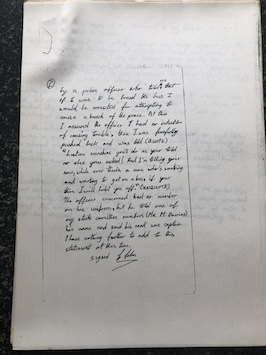 ②
by a police officer who told me that
if I was to be board the bus I
would be arrested for attempting to
cause a breach of the peace. At this
I assured the officer I had no intention
of causing trouble, then I was forcefully
pushed back and was told (QUOTE)
you'll do as your told
or else your nicked! And I'm telling you
now, while ever there's a man who's working
and wanting to get on a bus if your
thin I will hold you off." (UNQUOTE)
The officer concerned had no number
on his uniform, but he told one of
my strike committee members (Mr. M.
his name and said his rank was captain.
I have nothing further to add to this
statement at this time.
signed